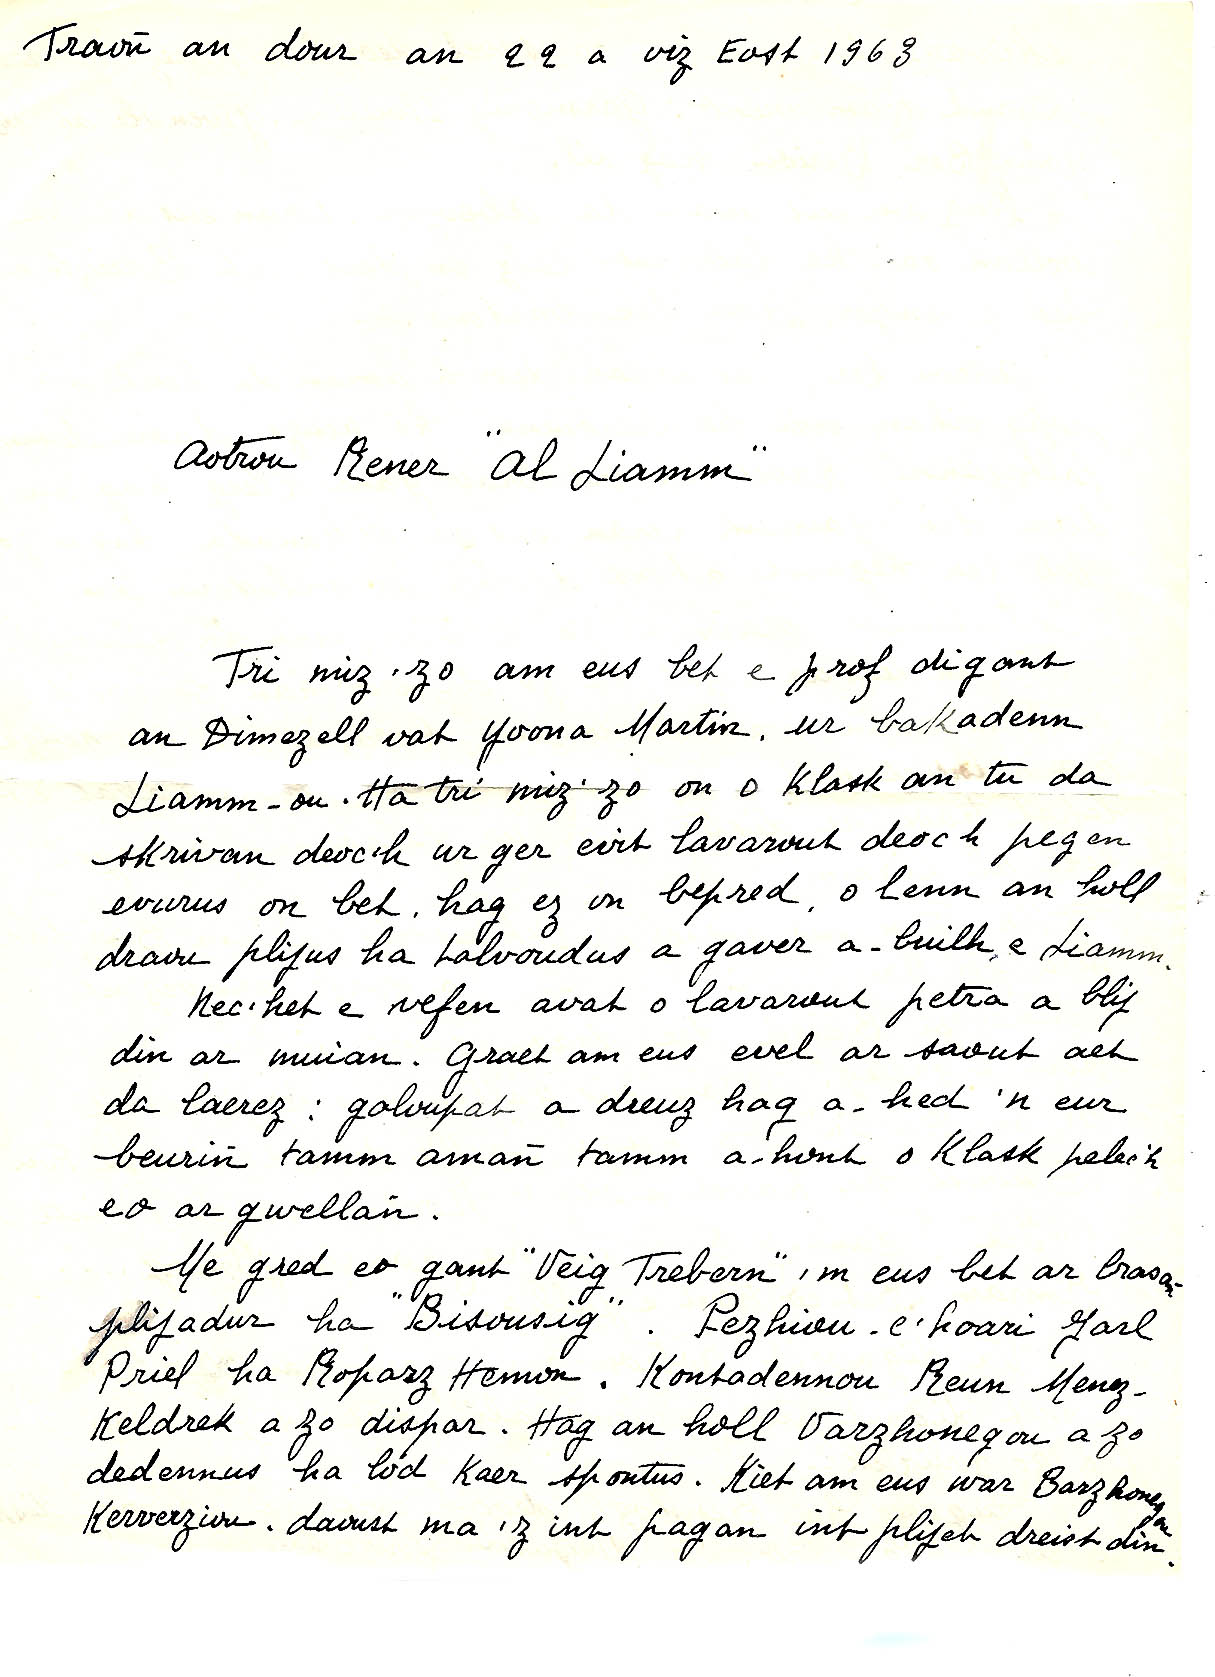 Traoñ an dour an 22 a viz Eost 1963
Aotrou Rener "Al Liamm"
Tri miz 'zo am eus bet e prof digant
an Dimezell vat Yvona Martin, ur bakadenn
Liamm-ou. Ha tri miz 'zo on o klask an tu da
skrivan deoc'h ur ger evit lavarout deoc'h pegen
evurus on bet, hag ez on bepred, o lenn an holl
draou plijus ha talvoudus a gaver a-builh e Liamm.
Nec'het e vefen avat o lavarout petra a blij
din ar muian. Graet am eus evel ar saout aet
da laerez : galoupat a dreuz hag a-hed 'n eur
beuriñ tamm amañ tamm a-hont o klask pelec'h
eo ar gwellañ.
Me gred eo gant "Veig Trebern" 'm eus bet ar brasañ
plijadur ha "Bisousig". Pezhiou-c'hoari Jarl
Priel ha Roparz Hemon. Kontadennou Reun Menez-
Keldrek a zo dispar. Hag an holl Varzhonegou a zo
dedennus ha lod kaer spontus. Kiet am eus war Barzhonegou
Kerverziou. daoust ma 'z int pagan int plijet dreist din.